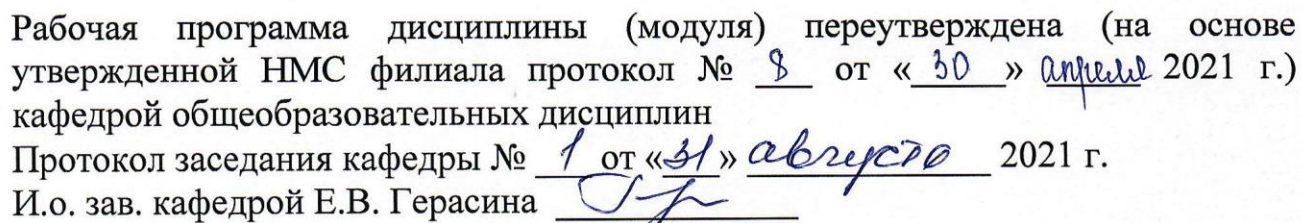 Рабочая программа дисциплины (модуля) переутверждена (на основе
утвержденной НМС филиала протокол № 8 от « 30 » апреля 2021 г.)
кафедрой общеобразовательных дисциплин
Протокол заседания кафедры № 1 от «31» августа 2021 г.
И.о. зав. кафедрой Е.В. Герасина